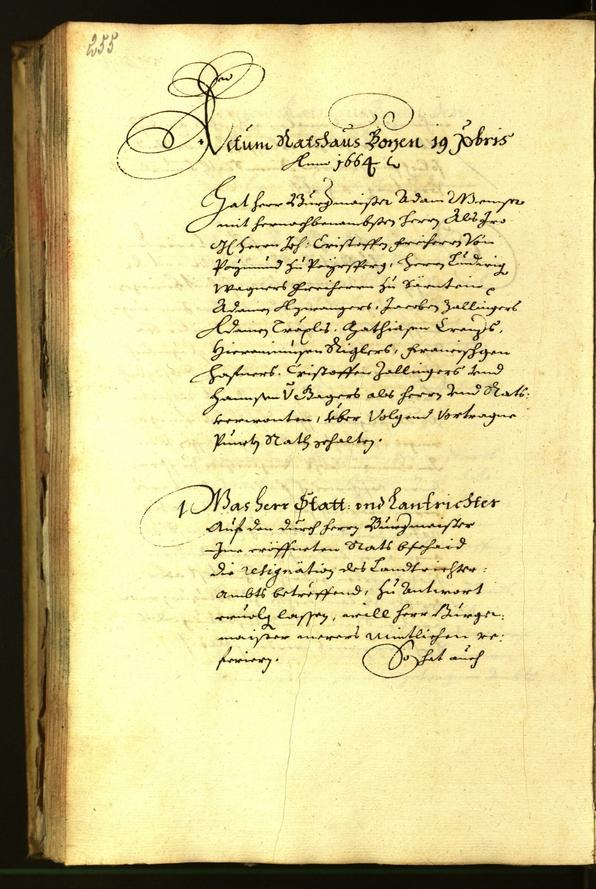 255
Actum Ratshaus Bozen 19 Xbris
Anno 1664
Hat herr Burgmaister Adam Menser
mit hernachbenanbsten herrn Als Iro
H. herrn Joh: Cristoffen freiherrn von
Poymund zu Payrsperg, herrn Ludwig
Wagners freiherrn zu Särntein
Adamen Hyrrangers, Jacoben Zallingers
Adamen Tröyles, Mathiasen Crenzs,
Hieronimusen Riglers, Francischgen
hafners, Cristoffen Zallingers vnd
Hannsen V Magers als herrn vnd Rats-
verwonten, über Volgend vortragne
Punctn Rath gehalten.
1 Was herr Statt: vnd Landrichter
Auf den durch herrn Burgmaister
Ime eröffneten Rats beschaid
die resignation des Landtrichter-
ambts betreffend, zu Antwort
ervolg lassen, will herr Burge-
maister merers mintlichen re-
feriern. So hat auch